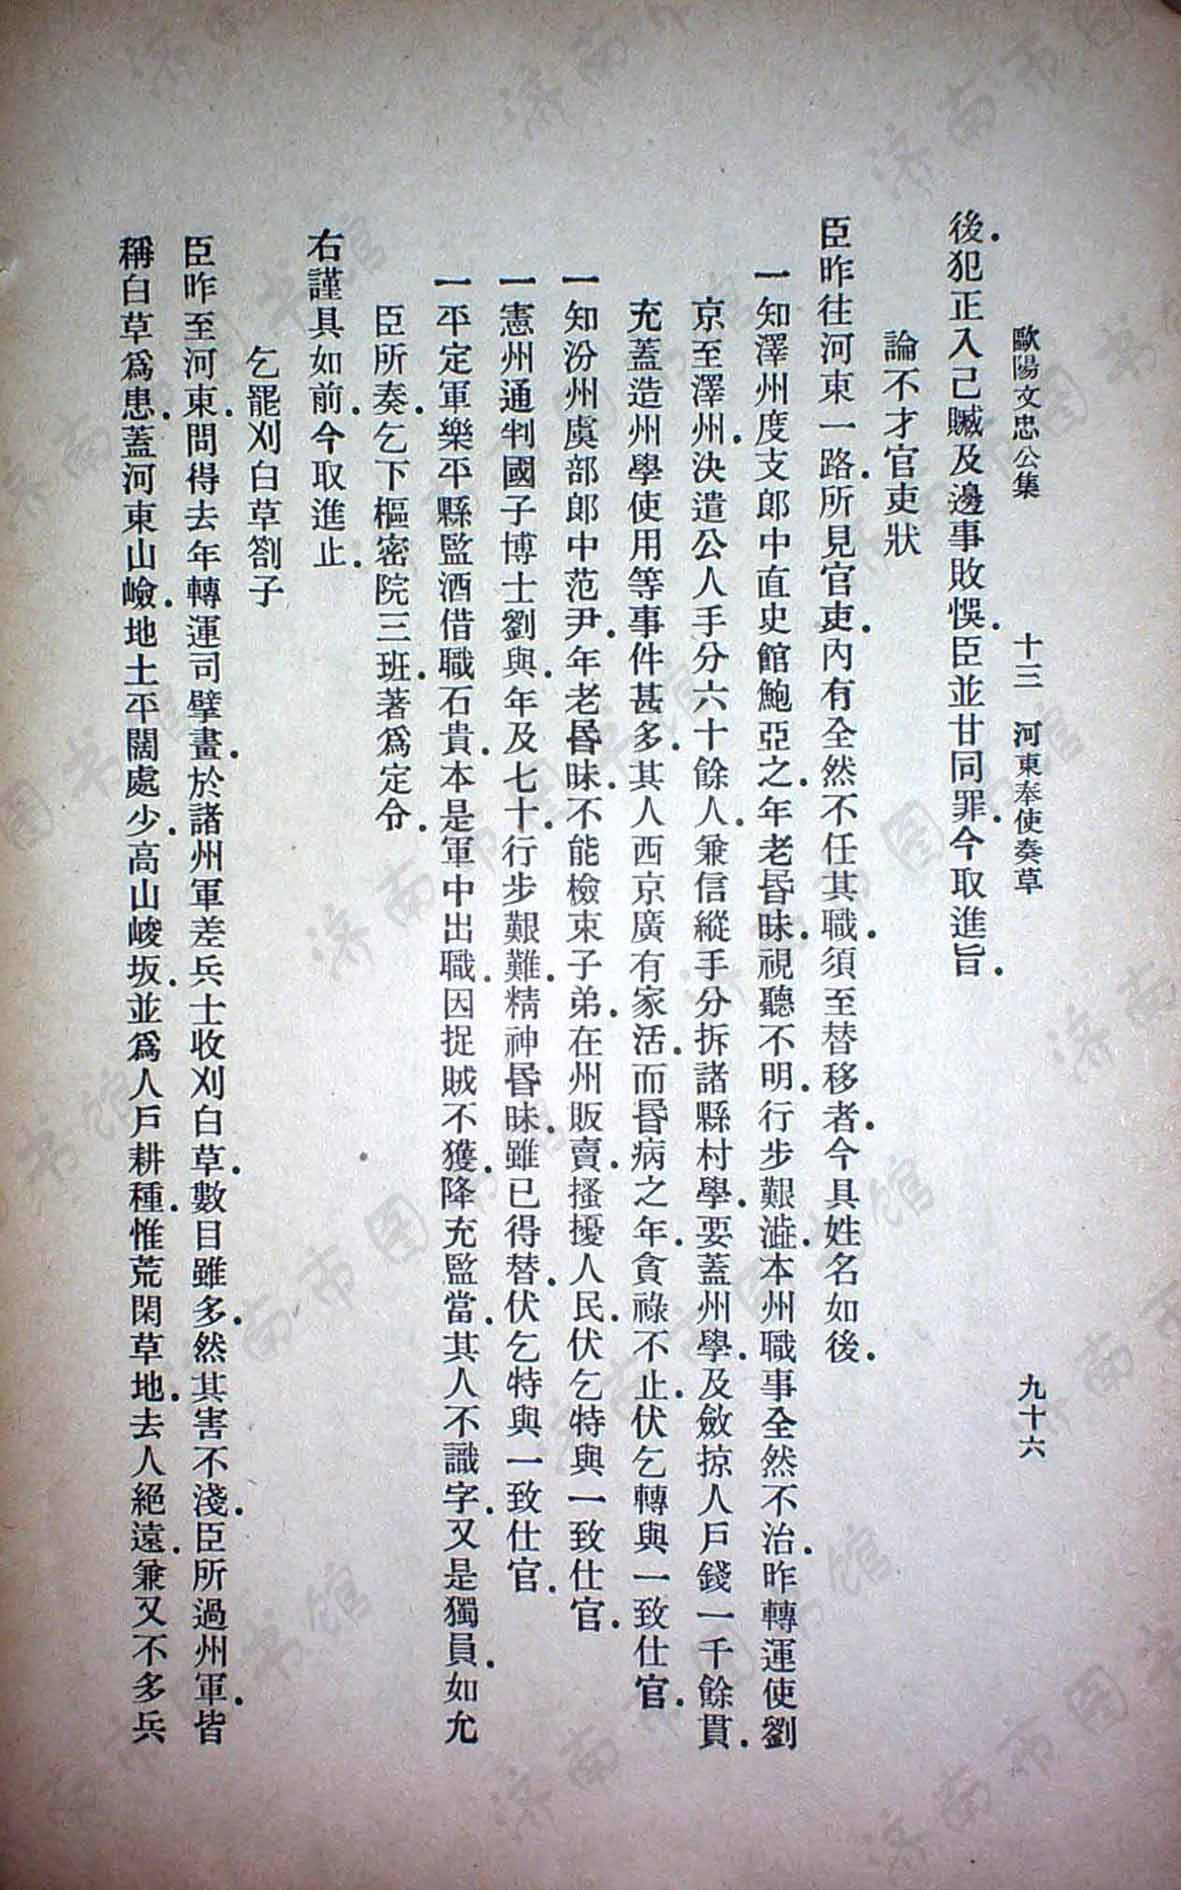 歐陽文忠公集　十三　河東奉使奏草　九十六
後．犯正入己贓及邊事敗悞．臣並甘同罪．今取進旨．
論不才官吏狀
臣昨往河東一路．所見官吏．內有全然不任其職．須至替移者．今具姓名如後．
一知澤州度支郎中直史館鮑亞之．年老昬昧．視聽不明．行步艱澁．本州職事全然不治．昨轉運使劉
京至澤州．決遣公人手分六十餘人．兼信縱手分拆諸縣村學．要蓋州學．及斂掠人戶錢一千餘貫．
充蓋造州學使用等事件甚多．其人西京廣有家活．而昬病之年．貪祿不止．伏乞轉與一致仕官．
一知汾州虞部郎中范尹．年老昬昧．不能檢束子弟．在州販賣．搔擾人民．伏乞特與一致仕官．
一憲州通判國子博士劉與．年及七十．行步艱難．精神昬昧．雖已得替．伏乞特與一致仕官．
一平定軍樂平縣監酒借職石貴．本是軍中出職．因捉賊不獲．降充監當．其人不識字．又是獨員．如允
臣所奏．乞下樞密院三班．著爲定令．
右謹具如前．今取進止．
乞罷刈白草劄子
臣昨至河東．問得去年轉運司擘畫．於諸州軍差兵士收刈白草．數目雖多．然其害不淺．臣所過州軍．皆
稱白草爲患．蓋河東山嶮．地土平闊處少．高山峻坂．並爲人戶耕種．惟荒閑草地．去人絕遠．兼又不多．兵
济南市图书馆